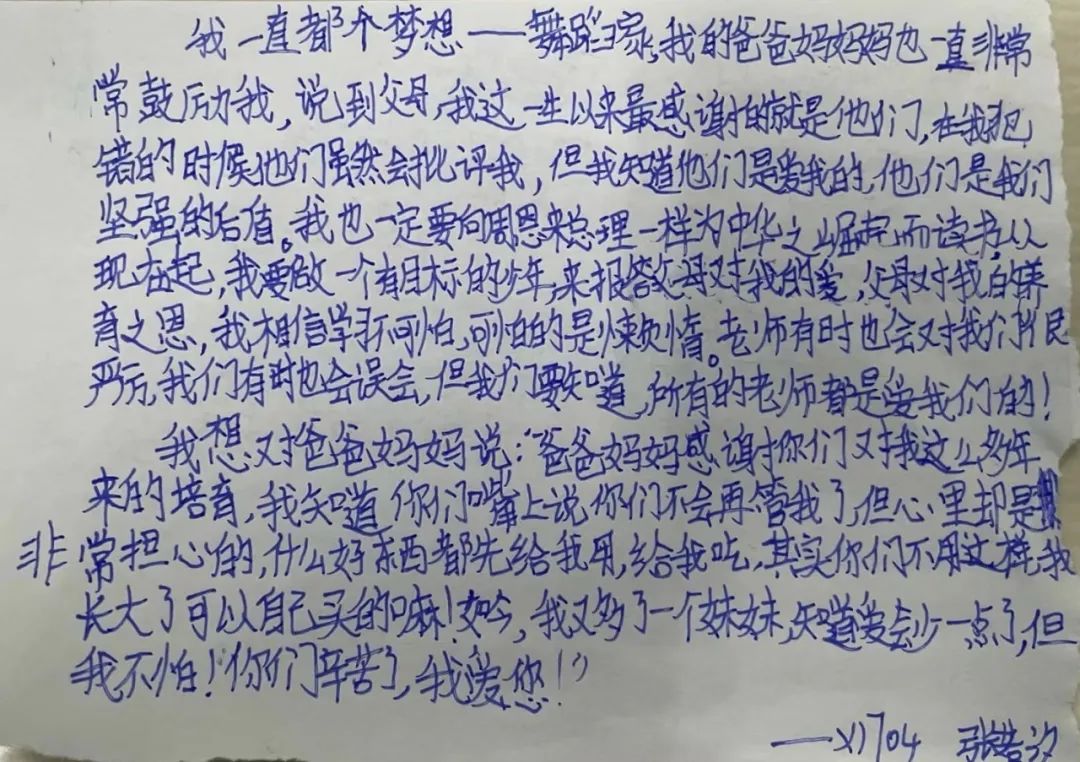 我一直都个梦想——舞蹈家,我的爸爸妈妈妈也一直非常
常鼓励我,说到父母,我这一生以来最感谢的就是他们,在我犯
错的时候他们虽然会批评我,但我知道他们是爱我的,他们是我们
坚强的后盾。我也一定要向周恩来总理一样为中华之崛起而读书,从
现在起,我要做一个有目标的少年,来报答父母对我的爱,父母对我的养
育之恩,我相信学习不可怕,可怕的是懒惰。老师有时也会对我们很
严厉,我们有时也会误会,但我们要知道,所有的老师都是爱我们的!
我想对爸爸妈妈说:“爸爸妈妈感谢你们对我这么多年
来的培育,我知道,你们嘴上说你们不会再管我了,但心里却是
非常担心的,什么好东西都先给我用,给我吃,其实你们不用这样,我
长大了可以自己买的嘛!如今,我又多了一个妹妹,知道爱会少一点了,但
我不怕!你们辛苦了,我爱您!”
——x1704 张